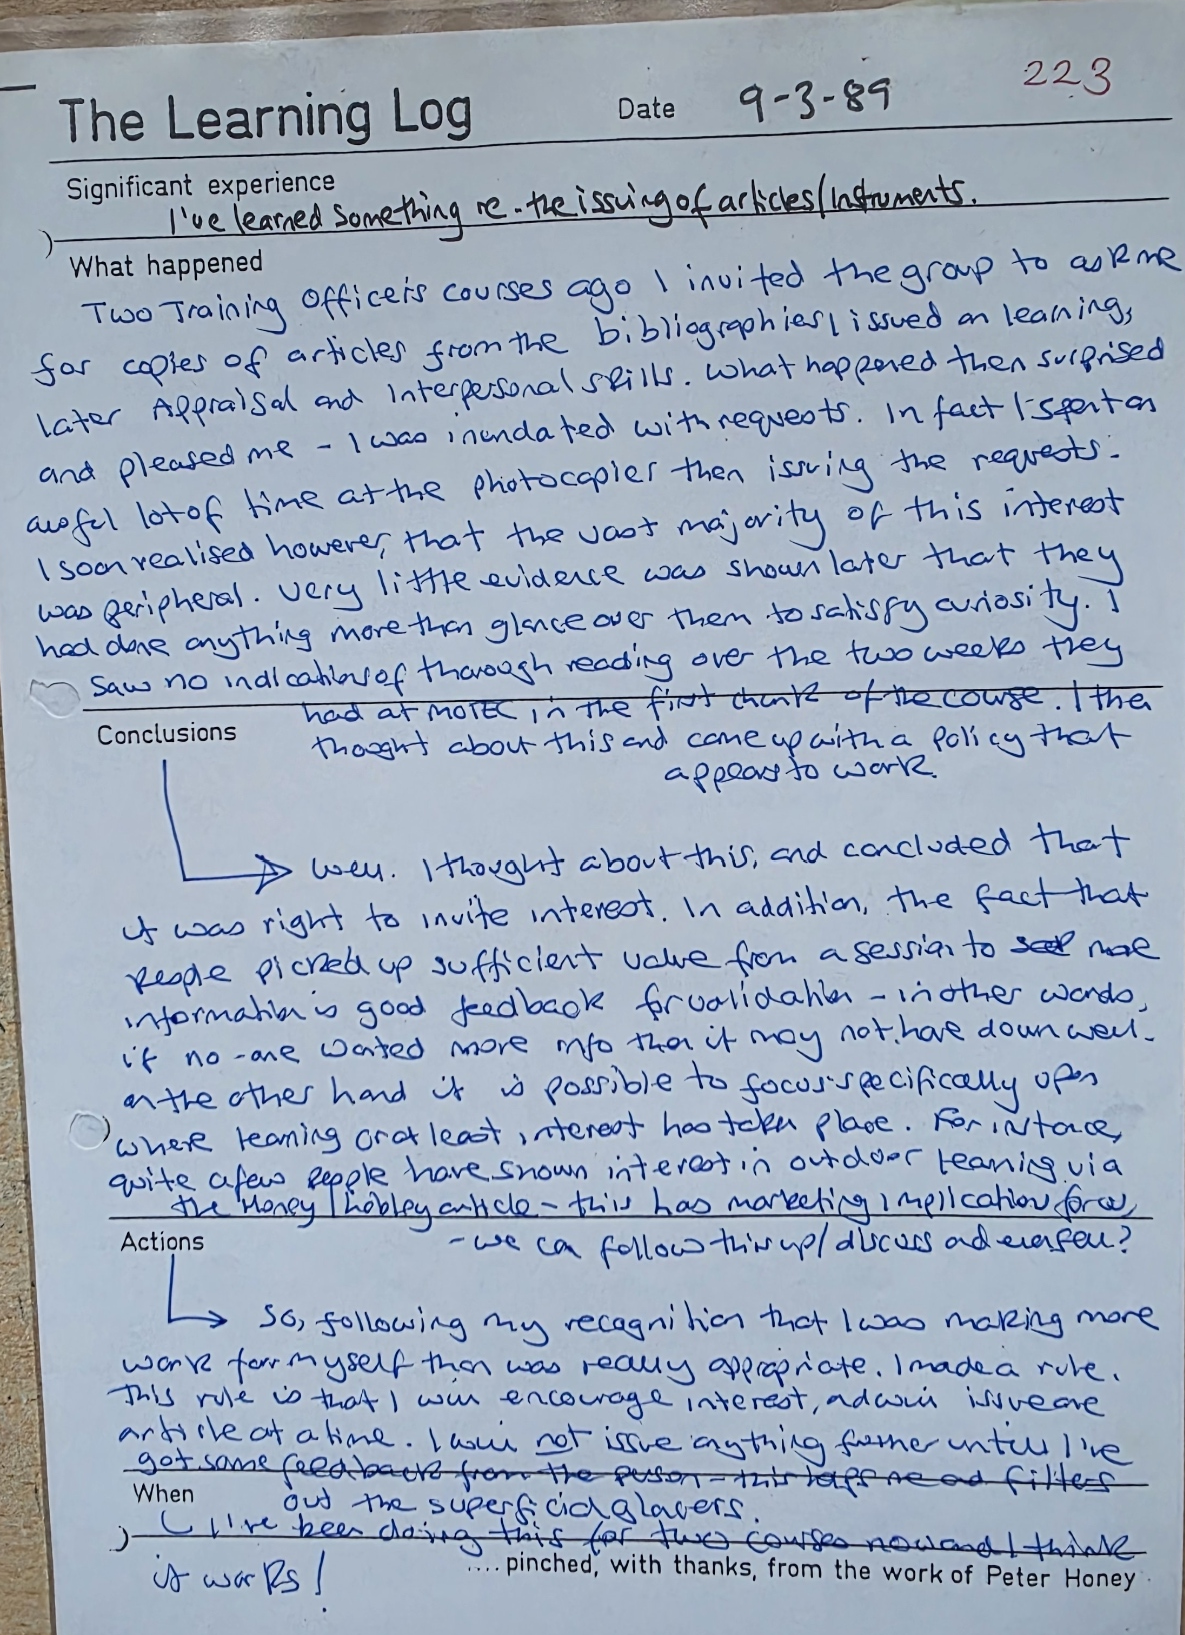 223
The Learning Log Date 9-3-89
Significant experience
I've learned something re-the issuing of articles/Instruments.
What happened
Two Training Officers courses ago I invited the group to ask me
for copies of articles from the bibliographies I issued on learning,
later Appraisal and Interpersonal skills. What happened then surprised
and pleased me - I was inundated with requests. In fact I spent an
awful lot of time at the photocopier then issuing the requests.
I soon realised however, that the vast majority of this interest
was peripheral. Very little evidence was shown later that they
had done anything more than glance over them to satisfy curiosity. I
saw no indication of thorough reading over the two weeks they
had at MOTEC in the first chunk of the course. I then
thought about this and came up with a policy that
appears to work.
Conclusions
Well. I thought about this, and concluded that
it was right to invite interest. In addition, the fact that
people picked up sufficient value from a session to seek more
information is good feedback for validation - in other words,
if no-one wanted more info then it may not have down well.
on the other hand it is possible to focus specifically upon
where learning or at least interest has taken place. For instance,
quite a few people have shown interest in outdoor learning via
the Honey/Lobley article - this has marketing implication for us,
- we can follow this up/discuss ad
Actions
So, following my recognition that I was making more
work for myself than was really appropriate. I made a rule.
This rule is that I will encourage interest, and will issue one
article at a time. I will not issue anything further until I've
got some feedback from the person - this helps me and filters
out the superficial glancers.
When
I've been doing this for two courses now and I think
it works!
....pinched, with thanks, from the work of Peter Honey